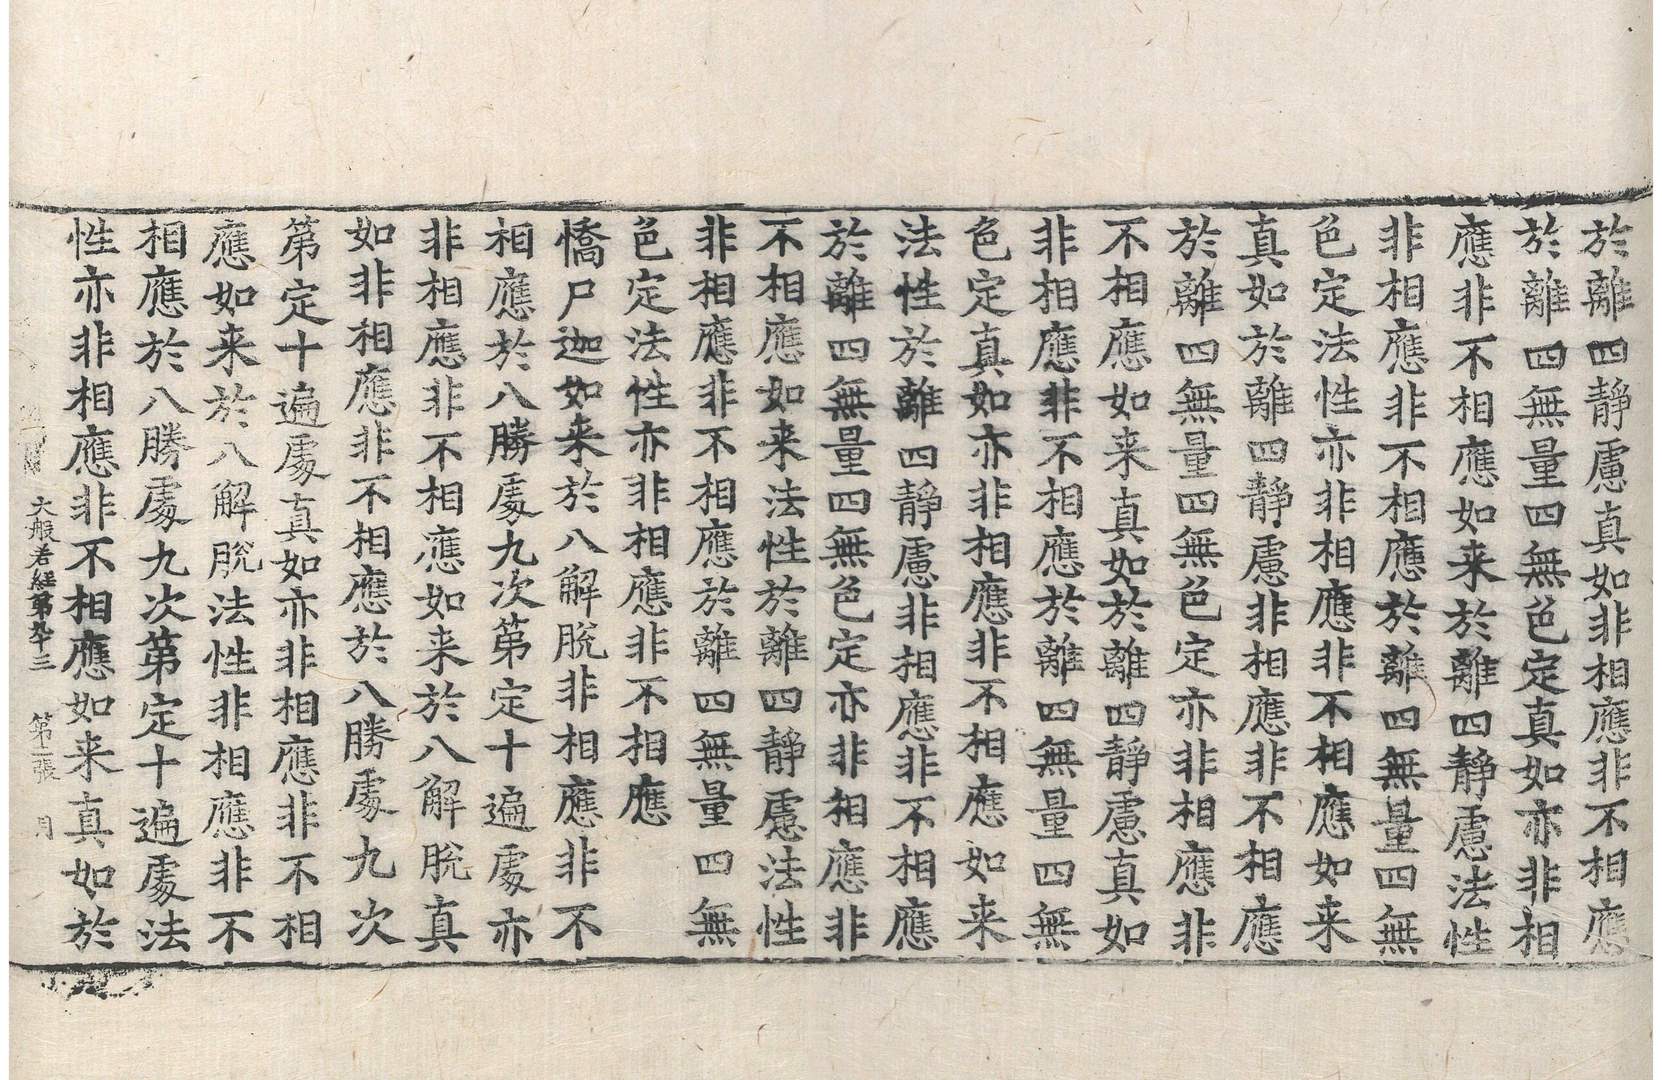 於離四靜慮真如非相應非不相應
於離四無量四無色定真如亦非相
應非不相應如来於離四靜慮法性
非相應非不相應於離四無量四無
色定法性亦非相應非不相應如来
真如於離四靜慮非相應非不相應
於離四無量四無色定亦非相應非
不相應如来真如於離四靜慮真如
非相應非不相應於離四無量四無
色定真如亦非相應非不相應如来
法性於離四靜慮非相應非不相應
於離四無量四無色定亦非相應非
不相應如来法性於離四靜慮法性
非相應非不相應於離四無量四無
色定法性亦非相應非不相應
憍尸迦如来於八解脫非相應非不
相應於八勝處九次第定十遍處亦
非相應非不相應如来於八解脫真
如非相應非不相應於八勝處九次
第定十遍處真如亦非相應非不相
應如来於八解脫法性非相應非不
相應於八勝處九次第定十遍處法
性亦非相應非不相應如来真如於
大般若經第九十三 第二張 月